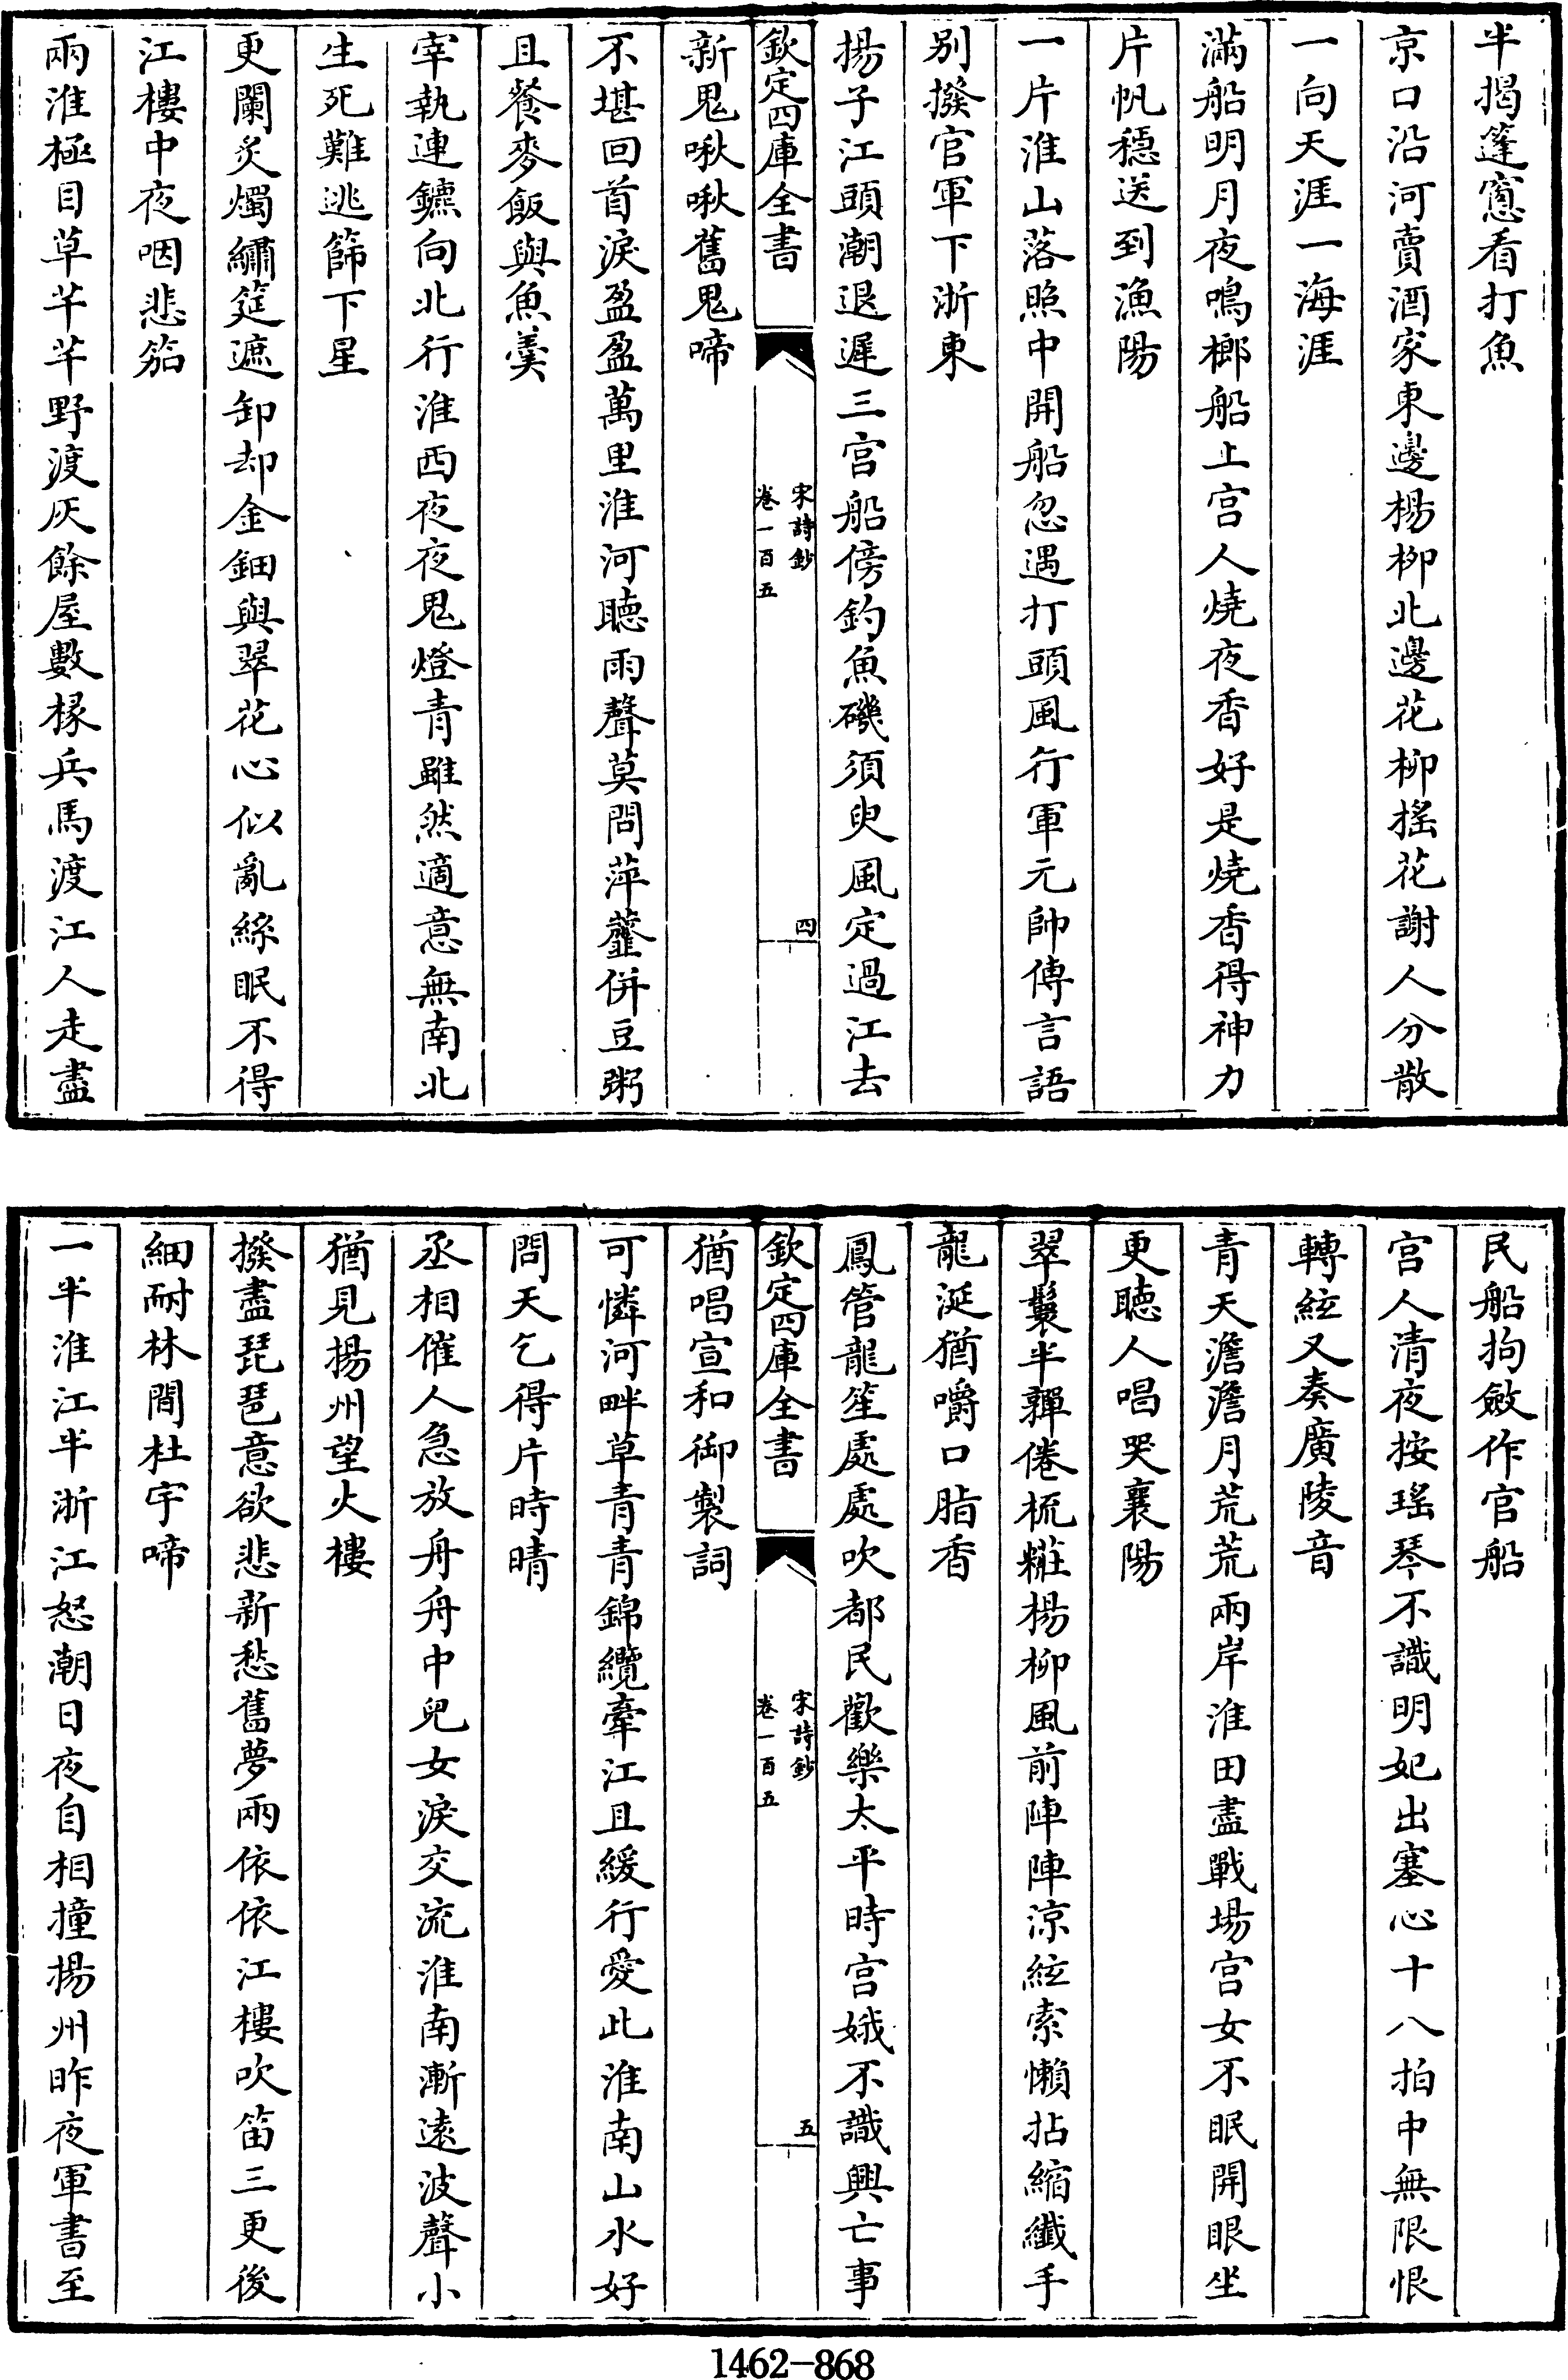 半揭篷窻看打魚
京口沿河賣酒家東邊楊柳北邊花柳搖花謝人分散
一向天涯一海涯
滿船明月夜鳴榔船上宫人燒夜香好是燒香得神力
片帆穩送到漁陽
一片淮山落照中開船忽遇打頭風行軍元帥傳言語
别撥官軍下浙東
揚子江頭潮退遲三宫船傍釣魚磯須臾風定過江去
欽定四庫全書
宋詩鈔
卷一百五
四
新鬼啾啾舊鬼啼
不堪回首淚盈盈萬里淮河聽雨聲莫問萍虀併豆粥
且餐麥飯與魚羹
宰執連鑣向北行淮西夜夜鬼燈青雖然適意無南北
生死難逃篩下星
更闌炙燭繡筵遮卸却金鈿與翠花心似亂絲眠不得
江樓中夜咽悲笳
兩淮極目草芊芊野渡灰餘屋數椽兵馬渡江人走盡
民船拘斂作官船
宫人清夜按瑶琴不識明妃出塞心十八拍中無限恨
轉絃又奏廣陵音
青天澹澹月荒荒兩岸淮田盡戰場宫女不眠開眼坐
更聽人唱哭襄陽
翠鬟半嚲倦梳糚楊柳風前陣陣涼絃索懶拈縮纖手
龍涎猶嚼口脂香
鳳管龍笙處處吹都民歡樂太平時宫娥不識興亡事
欽定四庫全書
宋詩鈔
卷一百五
五
猶唱宣和御製詞
可憐河畔草青青錦纜牽江且緩行愛此淮南山水好
問天乞得片時晴
丞相催人急放舟舟中兒女淚交流淮南漸遠波聲小
猶見揚州望火樓
撥盡琵琶意欲悲新愁舊夢兩依依江樓吹笛三更後
細耐林間杜宇啼
一半淮江半浙江怒潮日夜自相撞揚州昨夜軍書至
1462-868